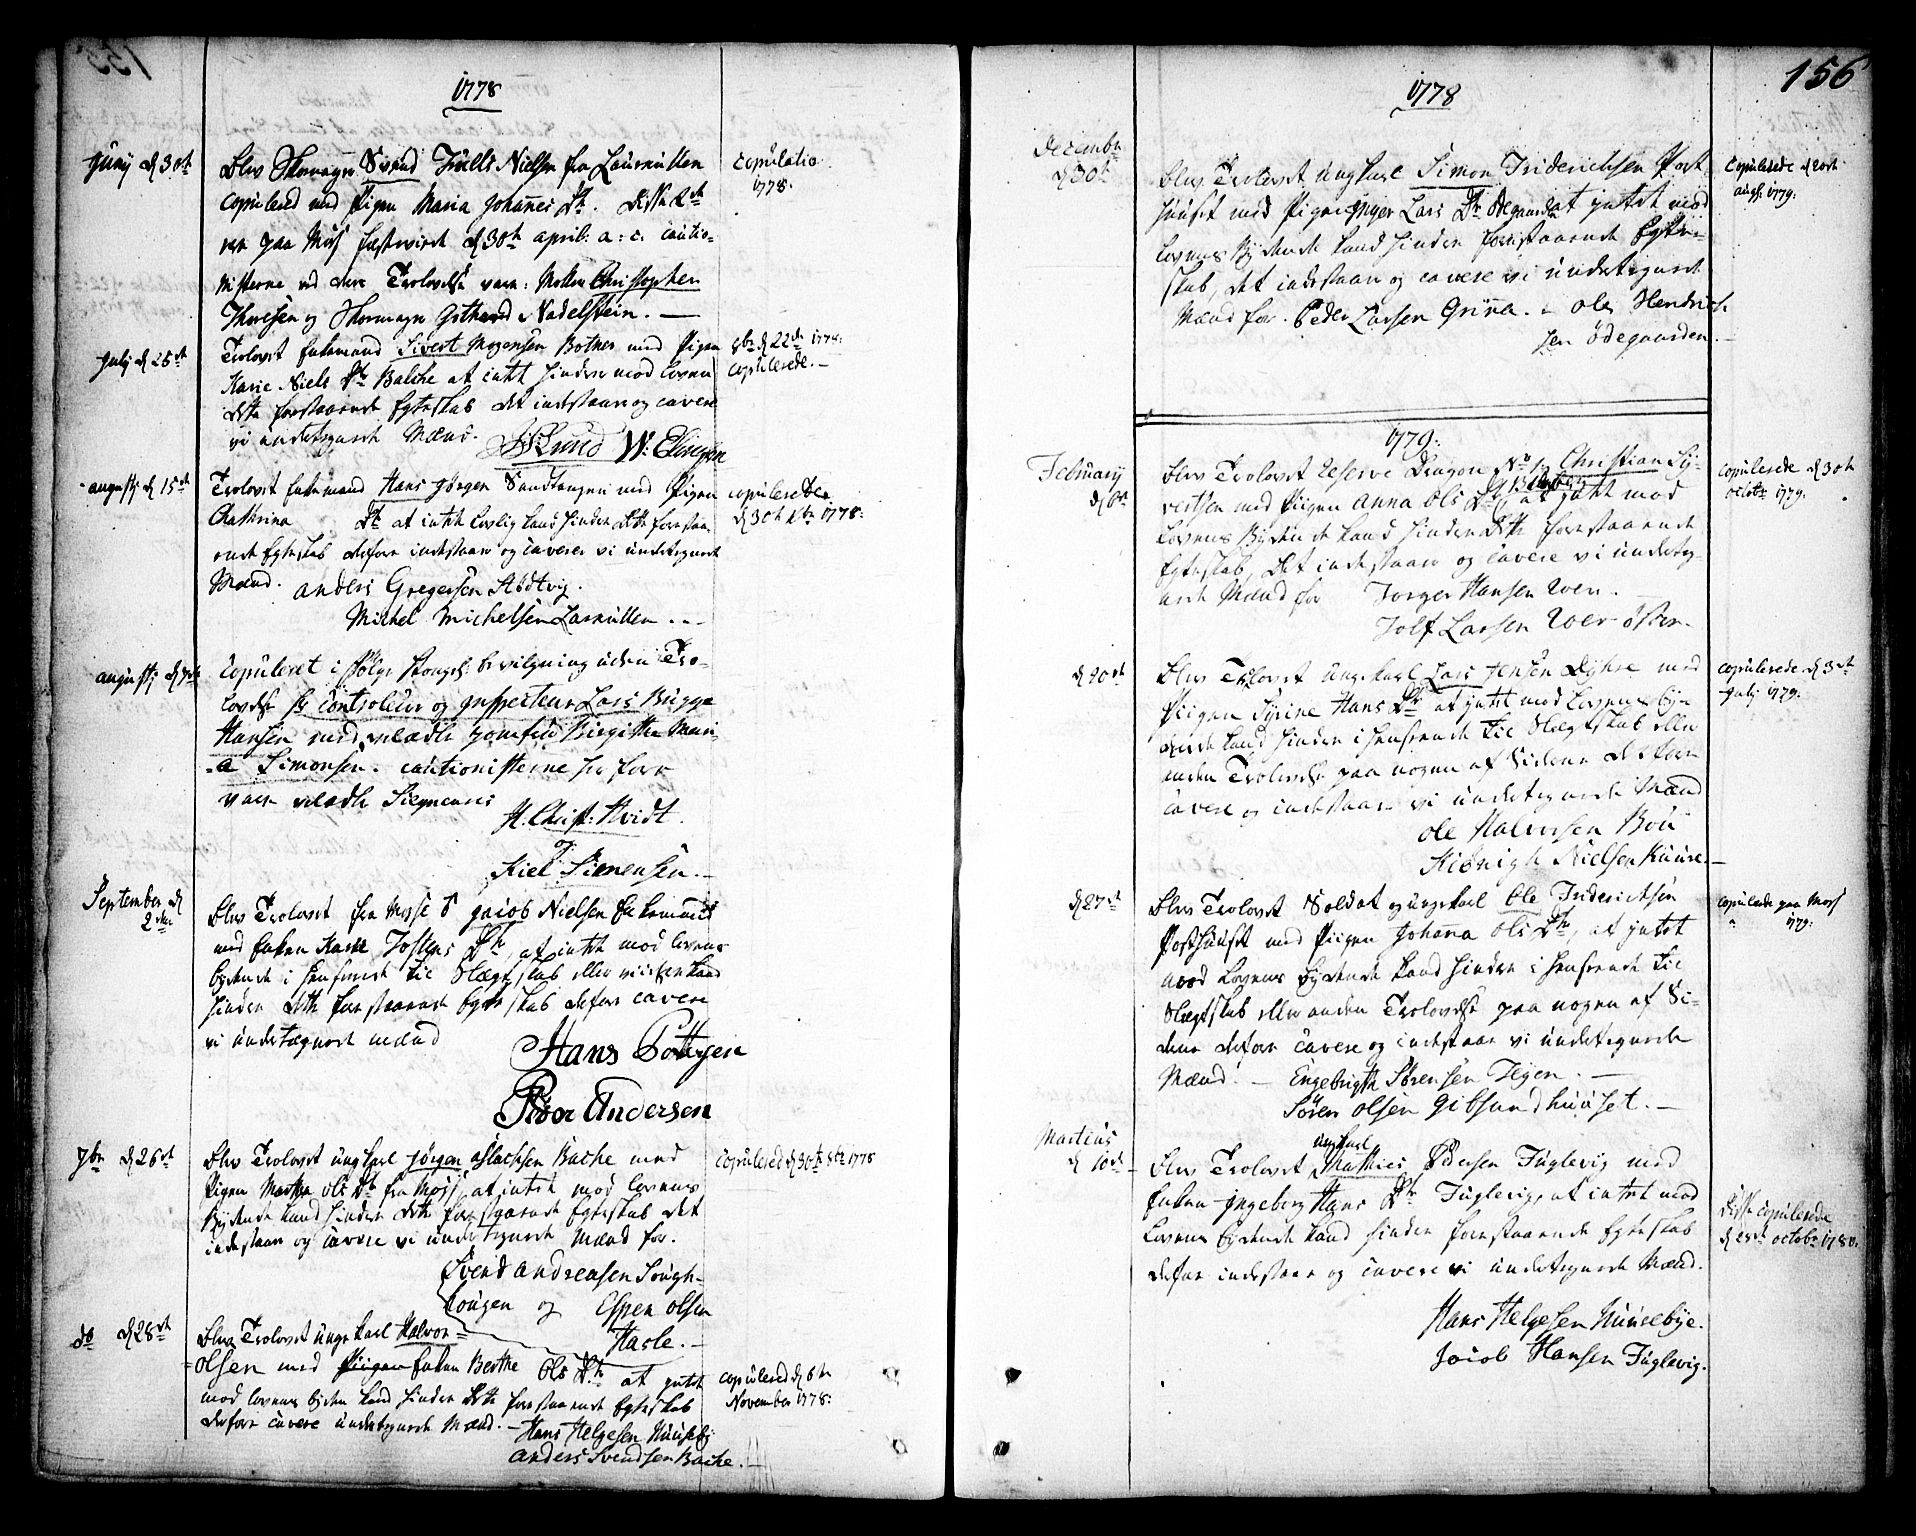 1778
Junij d 30te
Blev Skomager Svend Nielsen fra Laurkullen
Copulered med Pigen Maria Johannes Dtr. disse
paa Moss d 30te april: a: c: cautio-
nisterne ved dere Trolovelse vare: Christopher
Thoresen og Skomager Nadelstein. —
copulatio
1778.
Julij d 25de
Trolovet Enkemand Sivert Mogensen Botner med Pigen
Karie Niels Dtr Balche at intet hinder mod loven
dette forestaaende Egteskab det indestaar og cavere
vi undertegnede Mænd.
Lund W: Ellingsen
8br d 22de 1778:
Copulerede. —
augustij d 15de
Trolovet Enkemand Hans Jørgen Sandtangen med Pigen
Cathrina Dtr at intet lovlig kand hindre dette foresta-
ende Egteskab derfore indestaar og caverer vi undtegnede
Mænd. anders Gregersen Stødtvig.
Michel Michelsen Larkullen . - -
copulerede
d 30te 1778:
augustij d 7de
Copuleret i følge Kongel: bevilgning uden Tro-
lovelse Hr Controleur og Inspecteur Lars Bugge
Hansen med velædle Jomfru Birgitte Mari-
a Simonsen. cautionisterne her fore
vare velædle
H. Christ: Hvidt.
og
Kiel Simensen. —
September d
2den
Blev Trolovet fra Mosse Jacob Nielsen Enkemand
med Enken Karie Jostens Dtr, at intet mod lovens
bydende i henseende til Slegtskab eller videre kand
hindre dette forestaaende Egteskab derfore cavere
vi undertegnede mænd
Hans Pettersen
Andersen
7br d 26de
Blev Trolovet ungkarl Jørgen Aslachsen Bache med
Pigen Marthe Ols Dtr fra Moss, at intet mod lovens
Bydende kand hindre dette forestaaende Egteskab det
indestaar og cavere vi undertegnede Mænd for.
Svend Andreasen
og Espen Olsen
Hasle. —
Copulered d 30te 8br 1778
do d 28de
Blev Trolovet ungekarl Halvor
Olsen med Pigen Enken Berthe Ols Dtr at intet
mod lovens byden kand hindre dette forestaaende Egteskab
derfore cavere undertegnede Mænd. — Hans Helgesen Huusebÿ
Anders Svendsen Bache. —
copulered d 6te
November 1778:
156
1778
December
d 30te
Blev Trolovet ungkarl Simon Friderichsen Post-
huuset med Pigen Inger Lars Dtr Ødegaarden at intet mod
lovens Bydende kand hindre forestaaende Egte-
skab, det indestaar og cavere vi undertegnede
Mænd for. Peder Larsen Grina. - Ole Hendrich-
sen Ødegaarden. —
Copulerede d 20de
aug: 1779:
1779:
Februarij
d 6te
Blev Trolovet reserve Dragon No 1: Christian Sÿ-
vertsen med Piigen Anna Ols Dtr at intet mod
Lovens Bydende kand hindre dette forestaaende
Egteskab, det indestaar og cavere vi underteg-
nede Mænd for Torger Hansen Wen. —
Tolf Larsen Øster. —
copulerede d 30te
octobr 1779.
d 20de
Blev Trolovet ungkarl Lars Jensen Dÿhre med
Piigen Syrine Hans Dtr at intet mod Lovens by-
dende kand hindre i henseende til Slegtskab eller
anden Trolovelse paa nogen af Siderne derfore
cavere og indestaar vi undertegnede Mænd
Ole Halvorsen Boü
Nielsen Kuure. —
copulerede d 3de
Julij 1779.
d 27de
Blev Trolovet Soldat og ungekarl Ole Friderichsen
Posthuuset med Piigen Johanna Ols Dtr, at intet
mod Lovens bydende kand hindre i henseende til
Slegtskab eller anden Trolovelse paa nogen af Si-
derne derfore cavere og indestaar vi undertegnede
Mænd! — Engebrigth Sørensen Tejen. —
Søren Olsen Gibsundhuuset. —
copulerede paa Moss
179:
Martius
d 10de
Blev Trolovet ungkarl Mathies Pedersen Fuglevig med
Enken Ingeborg Hans Dtr Fuglevig, at intet mod
Lovens bydende kand hindre forestaaende Egteskab
derfor indestaar og cavere vi undertegnede Mænd.
Hans Helgesen Huusebye.
Jacob Hansen Fuglevig.
Disse copulerede
d 28de octobr 1780.